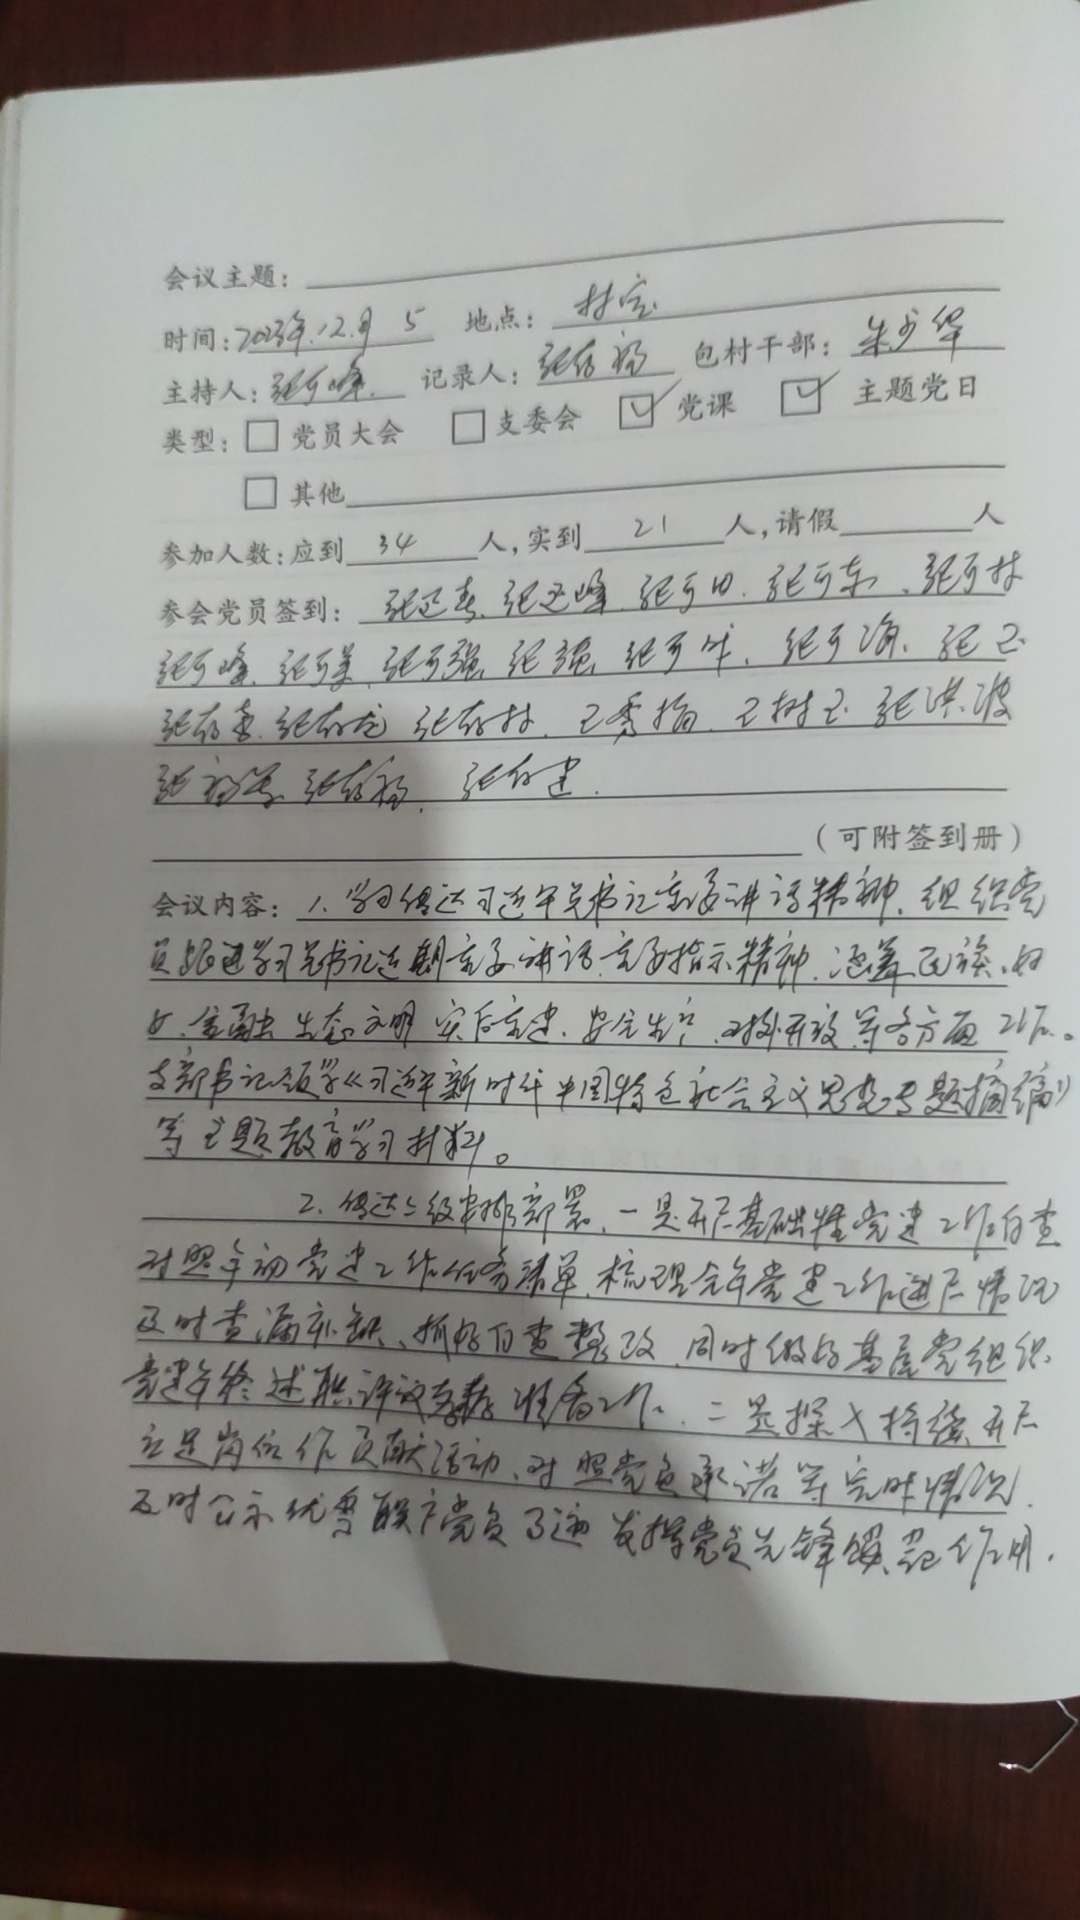 会议主题：
时间：2023年.12.月 5 地点：村室
主持人：张可峰. 记录人：张存福 包村干部：朱少华
类型：□ 党员大会 □ 支委会 ☑ 党课 ☑ 主题党日
□ 其他
参加人数：应到 34 人，实到 21 人，请假 人
参会党员签到： 张可田. 张可东、张可林
张可峰、张可美、张可强、张强、张可 张可 张玉
张存 张存龙 张存林、王秀 王树玉 张洪波
张 张存福、张存建.
（可附签到册）
会议内容：1、学习传达习近平总书记重要讲话精神、组织党
员跟进学习总书记近期重要讲话、重要指示精神、涵盖民族、妇
女、金融、生态文明 灾后重建、安全生产、对外开放等各方面工作。
支部书记领学《习近平新时代中国特色社会主义思想专题摘编》
等主题教育学习材料。
2、传达上级安排部署、一是开展基础性党建工作自查
对照年初党建工作任务清单、梳理全年党建工作进展情况
及时查漏补缺、抓好自查整改、同时做好基层党组织
党建年终述职评议考核准备工作、二是深入持续开展
立足岗位作贡献活动、对照党员承诺等完成情况、
及时公示优秀联户党员事迹 发挥党员先锋模范作用.